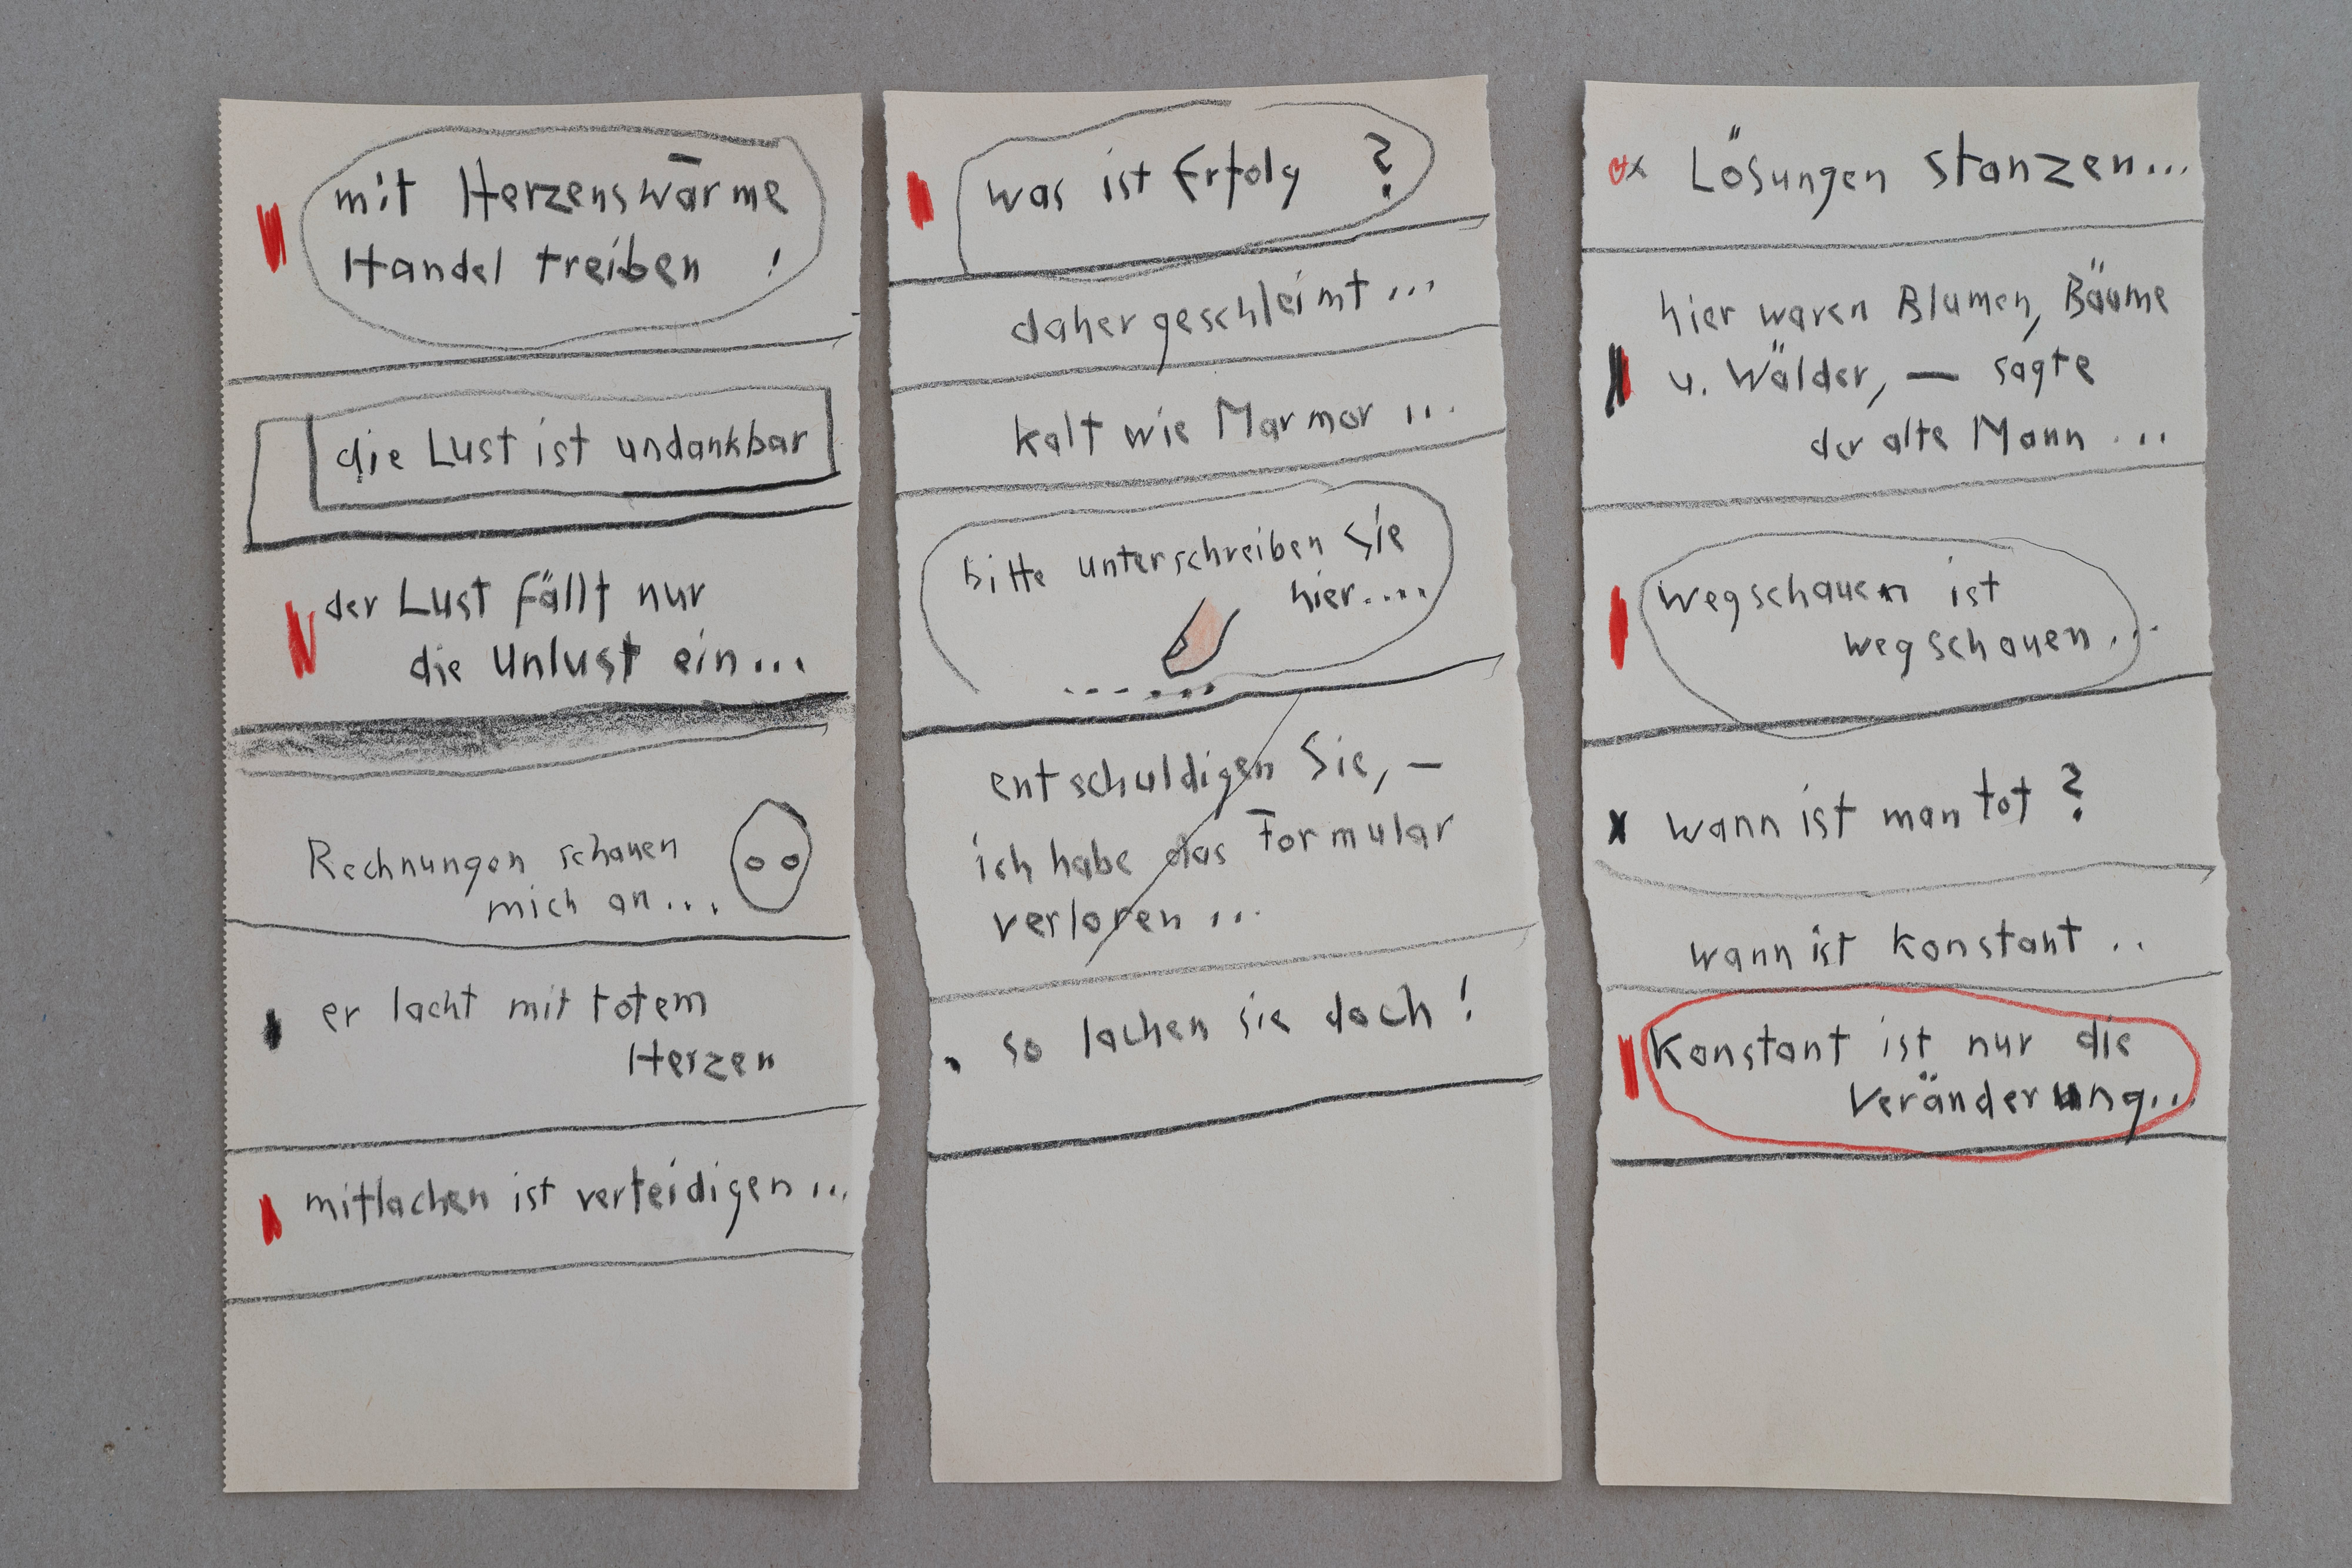 mit Herzenswärme
Handel treiben !
die Lust ist undankbar
der Lust fällt nur
die Unlust ein...
Rechnungen schauen
mich an...
er lacht mit totem
Herzen
mitlachen ist verteidigen...
was ist Erfolg ?
dahergeschleimt...
kalt wie Marmor...
bitte unterschreiben Sie
hier....
entschuldigen Sie, —
ich habe das Formular
verloren...
so lachen sie doch !
Lösungen stanzen...
hier waren Blumen, Bäume
u. Wälder, — sagte
der alte Mann...
wegschauen ist
wegschauen...
wann ist man tot ?
wann ist konstant..
Konstant ist nur die
Veränderung...